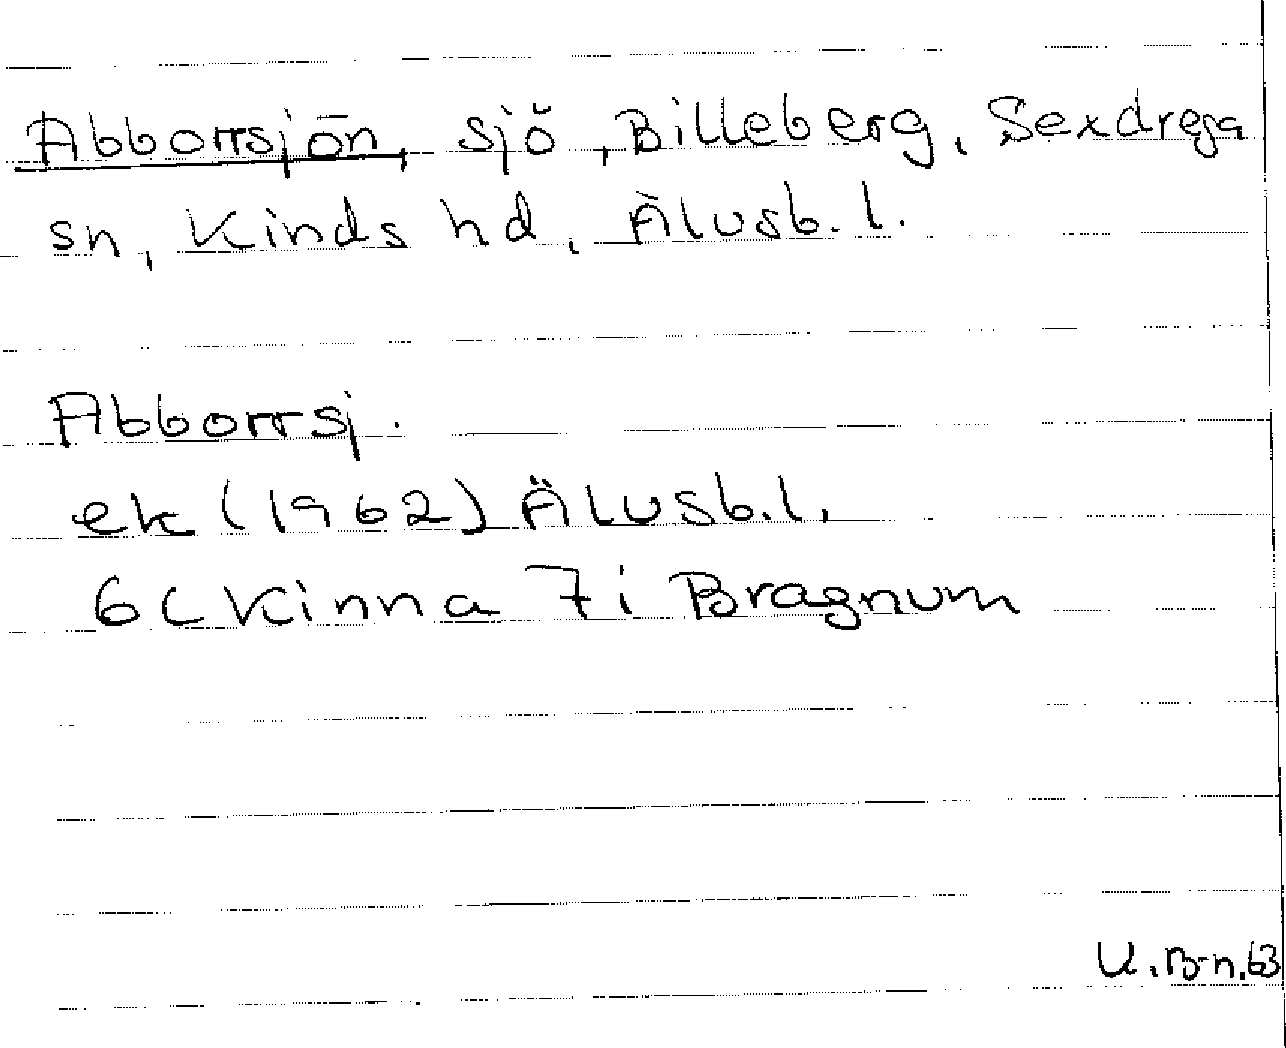 Abborrsjön, sjö, Billeberg, Sexdrega
sn, Kinds hd, Älvsb. l.
Abborrsj.
ek (1962) Älvsb. l.
6C Kinna 7i Bragnum
U. B-n. 63